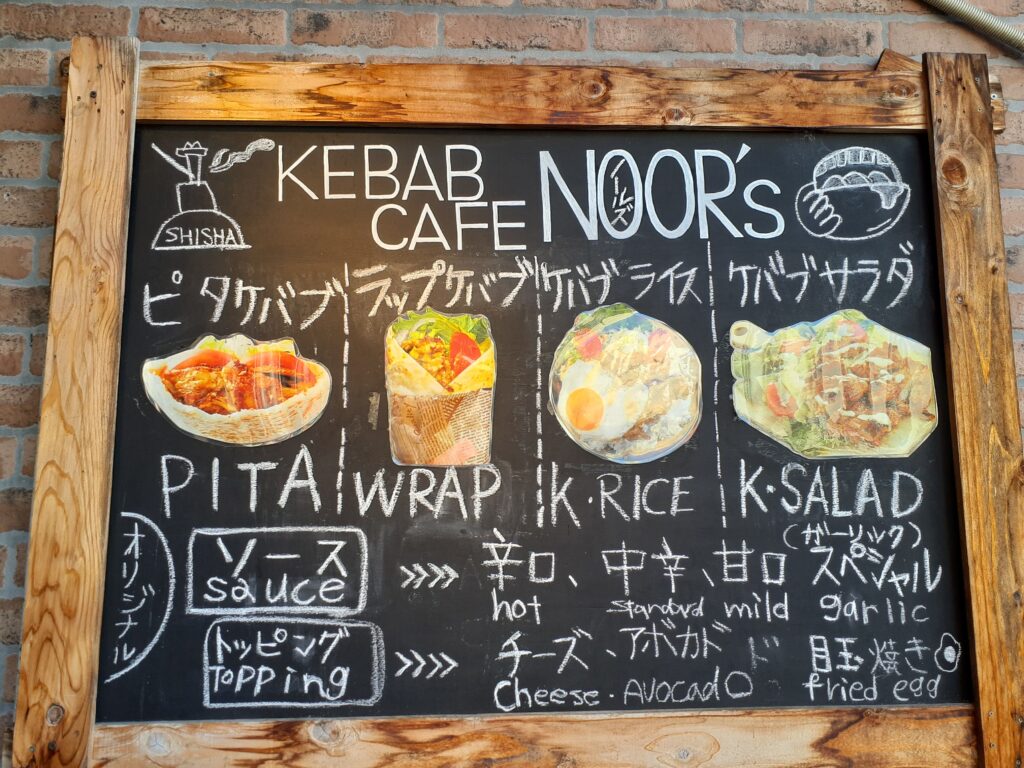 SHISHA
KEBAB CAFE
NOOR's
ノールズ
ピタケバブ
ラップケバブ
ケバブライス
ケバブサラダ
PITA
WRAP
K・RICE
K・SALAD
オリジナル
ソース
sauce
辛口、中辛、甘口
(ガーリック)
スペシャル
hot standard mild garlic
トッピング
Topping
チーズ、アボカド 目玉焼き
Cheese・Avocado fried egg